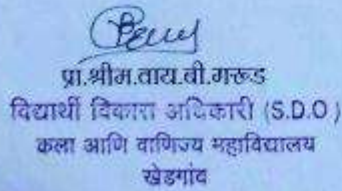 प्रा.श्रीम.ताय.बी.गरूड
विद्यार्थी विकास अधिकारी (S.D.O)
कला आणि वाणिज्य महाविद्यालय
खेडगांव